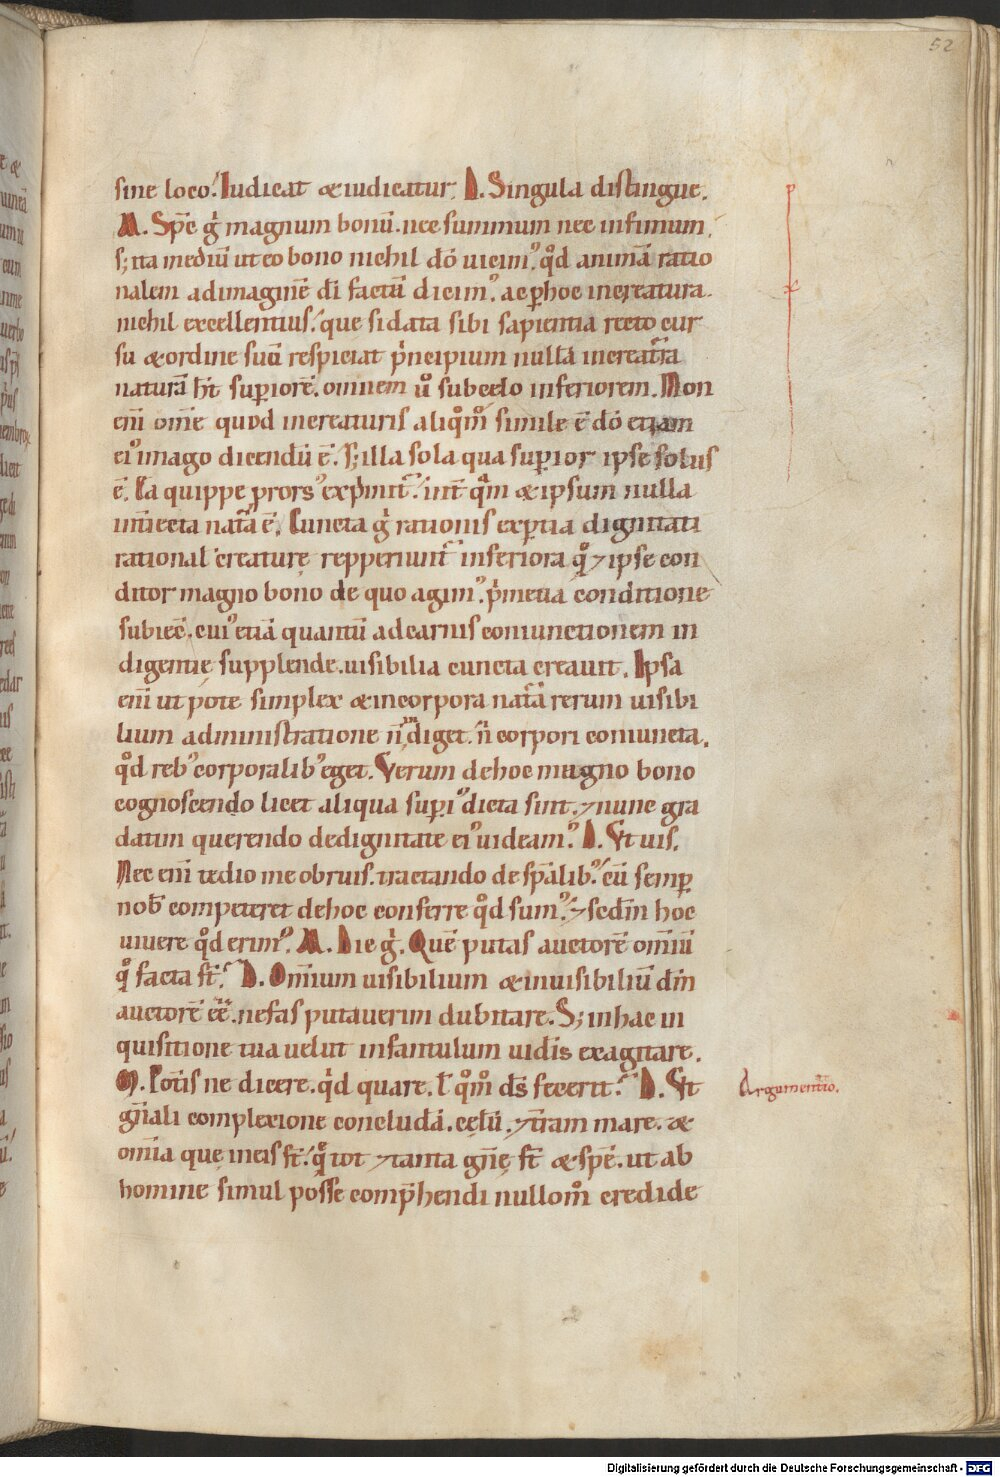 52
sine loco. Iudicat & iudicatur. D. Singula distingue.
M. Spē g̍ magnum bonū. nec summum nec infimum,
s; ita mediū ut eo bono nichil dō uicini᾿ q̊d animā ratio
nalem ad imaginē dī factū dicim᾿. ac ꝑ hoc in creatura
nichil excellentius. que si data sibi sapientia recto cur
su & ordine suū respiciat p̍ncipium nullā in creat̄a
naturā h̄t suꝑiorē. omnem ů subcelo inferiorem. Non
eni̅ om̄e quod in creaturis aliq̊m̊ simile ē dō etiam
ei᾿ imago dicendū ē. s; illa sola qua suꝑior ipse solus
ē. Ea quippe ꝓrors᾿ exp̍mit᷑. int̄ q̄m & ipsum nulla
int̄iecta nat̄a ē. Cuncta g̍ rationis exꝑtia dignitati
rational᾿ creaturę repperiunt᷑ inferiora q̊ ⁊ ipse con
ditor magno bono de quo agim᾿. p̍metia conditione
subiec̄. cui᾿ etiā quantū ad carnis coniunctionem in
digentię supplende. uisibilia cuncta creauit. Ipsa
eni̅ ut pote simplex & incorpora nat̄a rerum uisibi
lium administratione n̄ īdiget. n̍ corpori coniuncta.
q̊d reb᾿ corporalib᾿ eget. Verum de hoc magno bono
cognoscendo licet aliqua suꝑi᾿ dicta sint. ⁊ nunc gra
datim querendo de dignitate ei᾿ uideam᾿. D. Vt uis.
Nec eni̅ tedio me obruis. tractando de sp̄alib᾿. cū semꝑ
nob̄ competeret de hoc conferre q̊d sum᾿. ⁊ sedm̄ hoc
uiuere q̊d erim᾿. M. Dic g̍. Quē putas auctorē omīū
q̊ facta st̄. D. Omīum uisibilium & inuisibiliū dm̄
auctorē eē. nefas putauerim dubitare. S; in hac in
quisitione tua uelut infantulum uidis exagitare.
M. Potis ne dicere. q̍d quare. l̄ q̊m̊ ds̄ fecerit. D. Vt
Argumentīo.
gn̄ali complexione concludā. cęlū. ⁊ t̄ram mare. &
om̄ia quę in eis st̄. q̊ tot ⁊ tanta gn̄ę st̄ & spē. ut ab
homine simul posse comp̄hendi nullom̊ credide
Digitalisierung gefördert durch die Deutsche Forschungsgemeinschaft - DFG